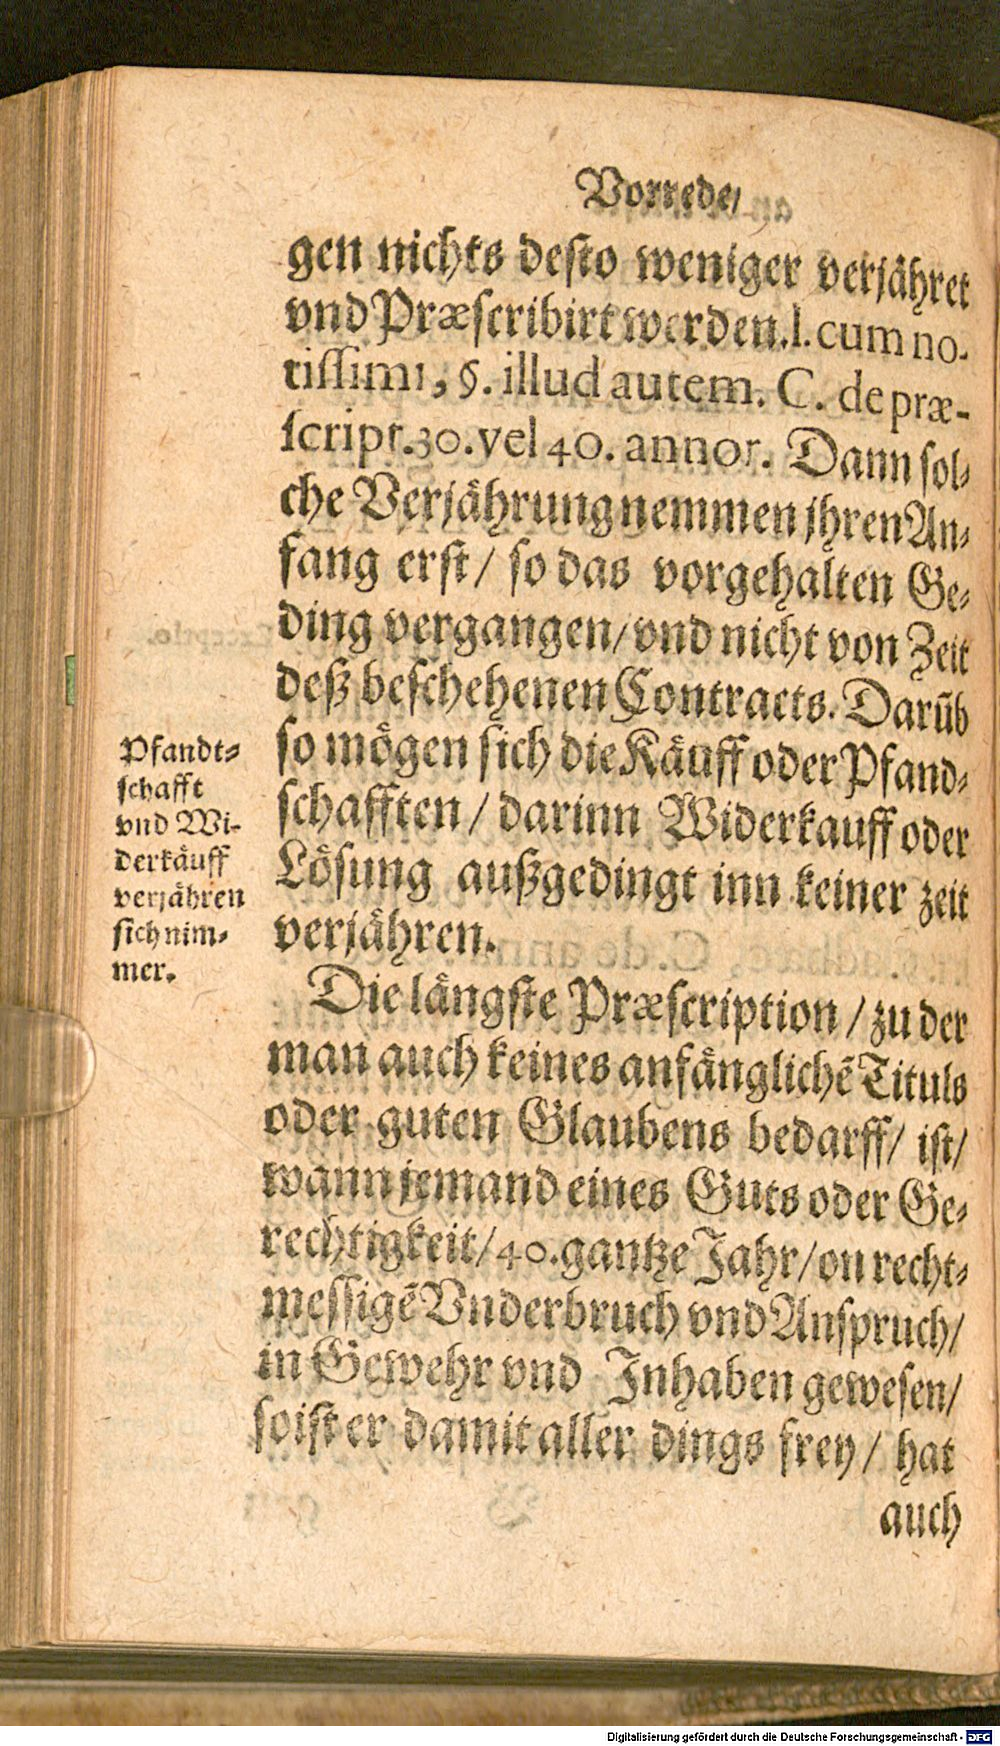 Vorrede/
gen nichts desto weniger verjähret
vnd Præscribirt werden. l. cum no-
tissimi, §. illud autem. C. de præ-
script. 30. vel 40. annor. Dann sol-
che Verjährung nemmen jhren An-
fang erst / so das vorgehalten Ge-
ding vergangen/ vnd nicht von Zeit
deß beschehenen Contracts. Darüb
so mögen sich die Käuff oder Pfand-
schafften / darinn Widerkauff oder
Lösung außgedingt inn keiner zeit
verjähren.
Pfandt-
schafft
vnd Wi-
derkäuff
verjähren
sich nim-
mer.
Die längste Præscription / zu der
man auch keines anfänglichẽ Tituls
oder guten Glaubens bedarff/ ist/
wann jemand eines Guts oder Ge-
rechtigkeit/ 40. gantze Jahr/ on recht-
messigẽ Vnderbruch vnd Anspruch/
in Gewehr vnd Inhaben gewesen/
so ist er damit aller dings frey / hat
auch
Digitalisierung gefördert durch die Deutsche Forschungsgemeinschaft - DFG